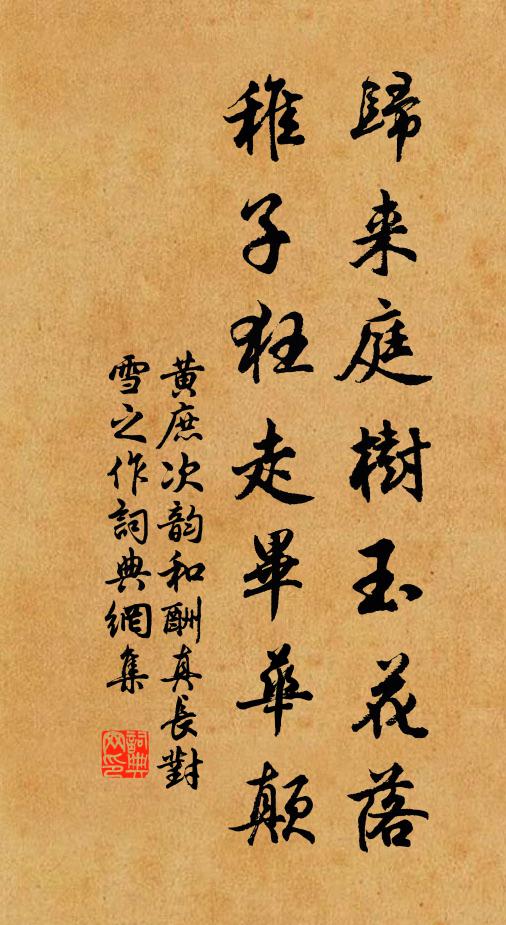 歸来庭樹玉花落
稚子狂走畢華顛
黄庶次韵和酬真長對
雪之作詞典網集
詞典網印